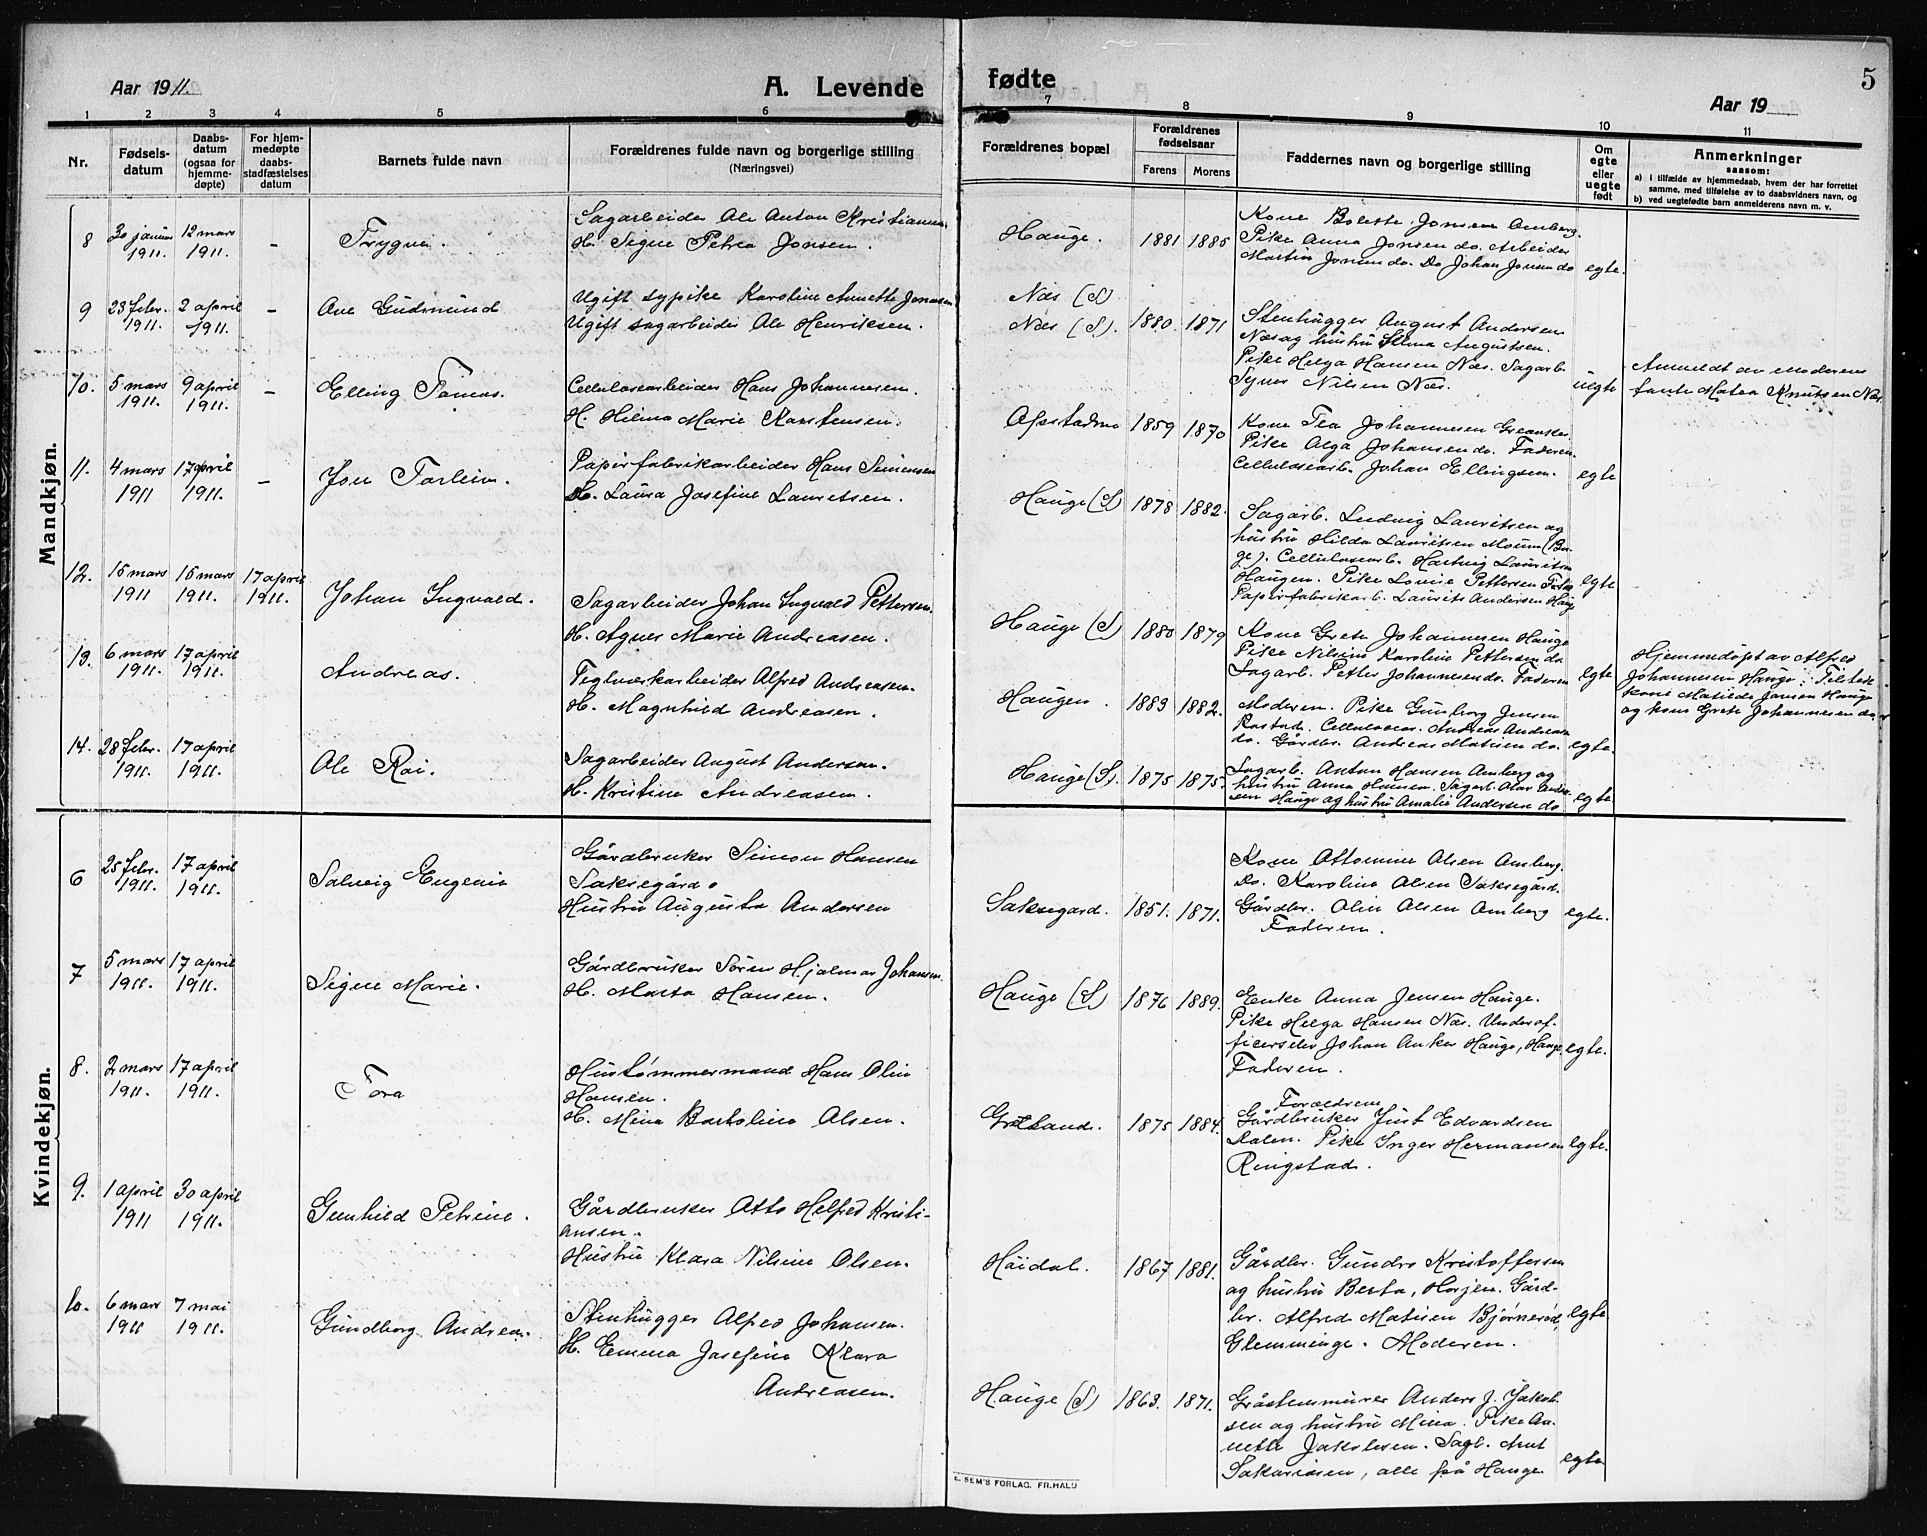 Aar 1911.
A. Levende
1 2 3 4 5 6
Nr.
Fødsels-
datum
Daabs-
datum
(ogsaa for
hjemme-
døpte)
For hjem-
medøpte
daabs-
stadfæstelses
datum
Barnets fulde navn
Forældrenes fulde navn og borgerlige stilling
(Næringsvei)
Mandkjøn.
8 30 januar 12 mars
1911. 1911. -
Trygve.
Sagarbeider Ole Anton Kristiansen
H. Signe Petrea Jonsen.
9 23 febr. 2 april
1911. 1911. -
Ove Gudmund
Ugift sypike Karoline Annette Jonassen
Ugift sagarbeider Ole Henriksen.
10. 5 mars 9 april
1911. 1911. -
Elling Tomas.
Cellulosearbeider Hans Johannesen
H. Helma Marie Karstensen.
11. 4 mars 17 april
1911 1911. -
Jon Torleiv.
Papirfabrikarbeider Hans Simensen
H. Laura Josefine Lauritsen.
12. 15 mars 15 mars 17 april
1911 1911. 1911.
Johan Ingvald.
Sagarbeider Johan Ingvald Pettersen.
H. Agnes Marie Andreasen.
13. 6 mars 17 april
1911. 1911.
Andreas.
Teglverkarbeider Alfred Andreasen.
H. Magnhild Andreasen.
14. 28 febr. 17 april
1911. 1911.
Ole Roi.
Sagarbeider August Andersen.
H. Kristine Andreasen.
Kvindekjøn.
6 25 febr. 17 april
1911. 1911.
Solveig Eugenie
Gårdbruker Simon Hansen
Saksegård.
Hustru Augusta Andersen
7 5 mars 17 april
1911. 1911.
Signe Marie.
Gårdbruker Søren Hjalmar Johansen.
H. Marta Hansen.
8. 2 mars 17 april
1911. 1911.
Tora
Hustømmermand Hans Olin
Hansen.
H. Mina Bartoline Olsen.
9. 1 april 30 april
1911 1911.
Gunhild Petrine.
Gårdbruker Otto Helfred Kristi-
ansen.
Hustru Klara Nilsine Olsen.
10. 6 mars 7 mai
1911 1911.
Gundborg Andrea.
Stenhugger Alfred Johansen.
H. Emma Josefine Klara
Andreasen.
fødte
5
Aar 19
7 8 9 10 11
Forældrenes bopæl
Forældrenes
fødselsaar
Farens Morens
Faddernes navn og borgerlige stilling
Om
egte
eller
uegte
født
Anmerkninger
saasom:
a) i tilfælde av hjemmedaab, hvem der har forrettet
samme, med tilføielse av to daabsvidners navn, og
b) ved uegtefødte barn anmelderens navn m. v.
Hauge. 1881 1885
Kone Bolette Jonsen Omberg.
Pike Anna Jonsen do. Arbeider
Martin Jonsen do. Do Johan Jonsen do
egte.
Næs (S)
Næs (S). 1880. 1871
Stenhugger August Andersen
Næs og hustru Elina Augustsen.
Pike Helga Hansen Næs. Sagarb.
Syver Nilsen Næs.
uegte
Anmeldt av moderens
tante Matea Knutsen Næs.
1859 1870
Kone Tea Johannesen Greaaker.
Pike Olga Johansen do. Faderen.
Cellulosearb. Johan Ellingsen.
egte
Hauge (S) 1878 1882.
Sagarb. Ludvig Lauritsen og
hustru Hilda Lauritsen Moum (Bor-
ge). Cellulosearb. Hartvig Lauritsen
Haugen. Pike Lovise Pettersen
Papirfabrikarb. Laurits Andersen Haug
egte
Hauge (S) 1880 1879
Kone Grete Johannesen Hauge
Pike Nilsine Karoline Pettersen do
Sagarb. Petter Johannesen do. Faderen
egte
Hjemmedøpt av Alfred
Johannesen Hauge. Tilstede
kone Matilde Jansen Hauge
og kone Grete Johannesen do
Haugen. 1883 1882.
Moderen. Pike Gunborg Jensen
Rostad. Cellulosear. Andreas Andreasen
do. Gårdbr. Andreas Matisen do.
egte.
Hauge (S). 1875 1875.
Sagarb. Anton Hansen Omberg og
hustru Anna Hansen. Sagarb. Olav Ander-
sen Hauge og hustru Amalie Andersen do
egte
Saksegard. 1851. 1871.
Kone Ottomine Olsen Omberg.
Do. Karoline Olsen Saksegård.
Gårdbr. Olin Olsen Omberg
Faderen.
egte.
Hauge (S) 1876 1889.
Enke Anna Jensen Hauge.
Pike Helga Hansen Næs. Underof-
ficerselev Johan Anker Hauge, Hauge
Faderen.
egte.
Grøtland. 1875 1884.
Forældrene
Gårdbruker Just Edvardsen
Dalen. Pike Inger Hermansen
Ringstad.
egte.
Höidal. 1867 1881.
Gårdbr. Gundro Kristoffersen
og hustru Berta, Horjen. Gård-
br. Alfred Matisen Bjørnerød,
Glemminge. Moderen.
egte
Hauge (S) 1863. 1871.
Gråstenmurer Anders J. Jakob-
sen og hustru Mina. Pike An-
nette Jakobsen. Sagb. Arnt
Sakariasen, alle på Hauge
egte
E. SEM'S FORLAG. FR.HALD